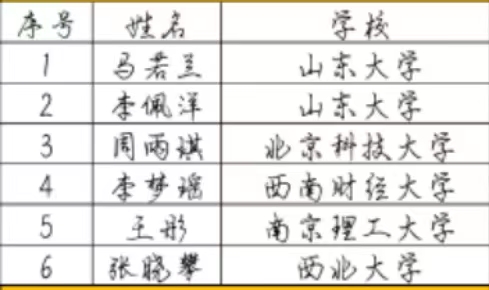 序号 姓名 学校
1 马若兰 山东大学
2 李佩洋 山东大学
3 周雨琪 北京科技大学
4 李梦瑶 西南财经大学
5 王彤 南京理工大学
6 张晓攀 西北大学